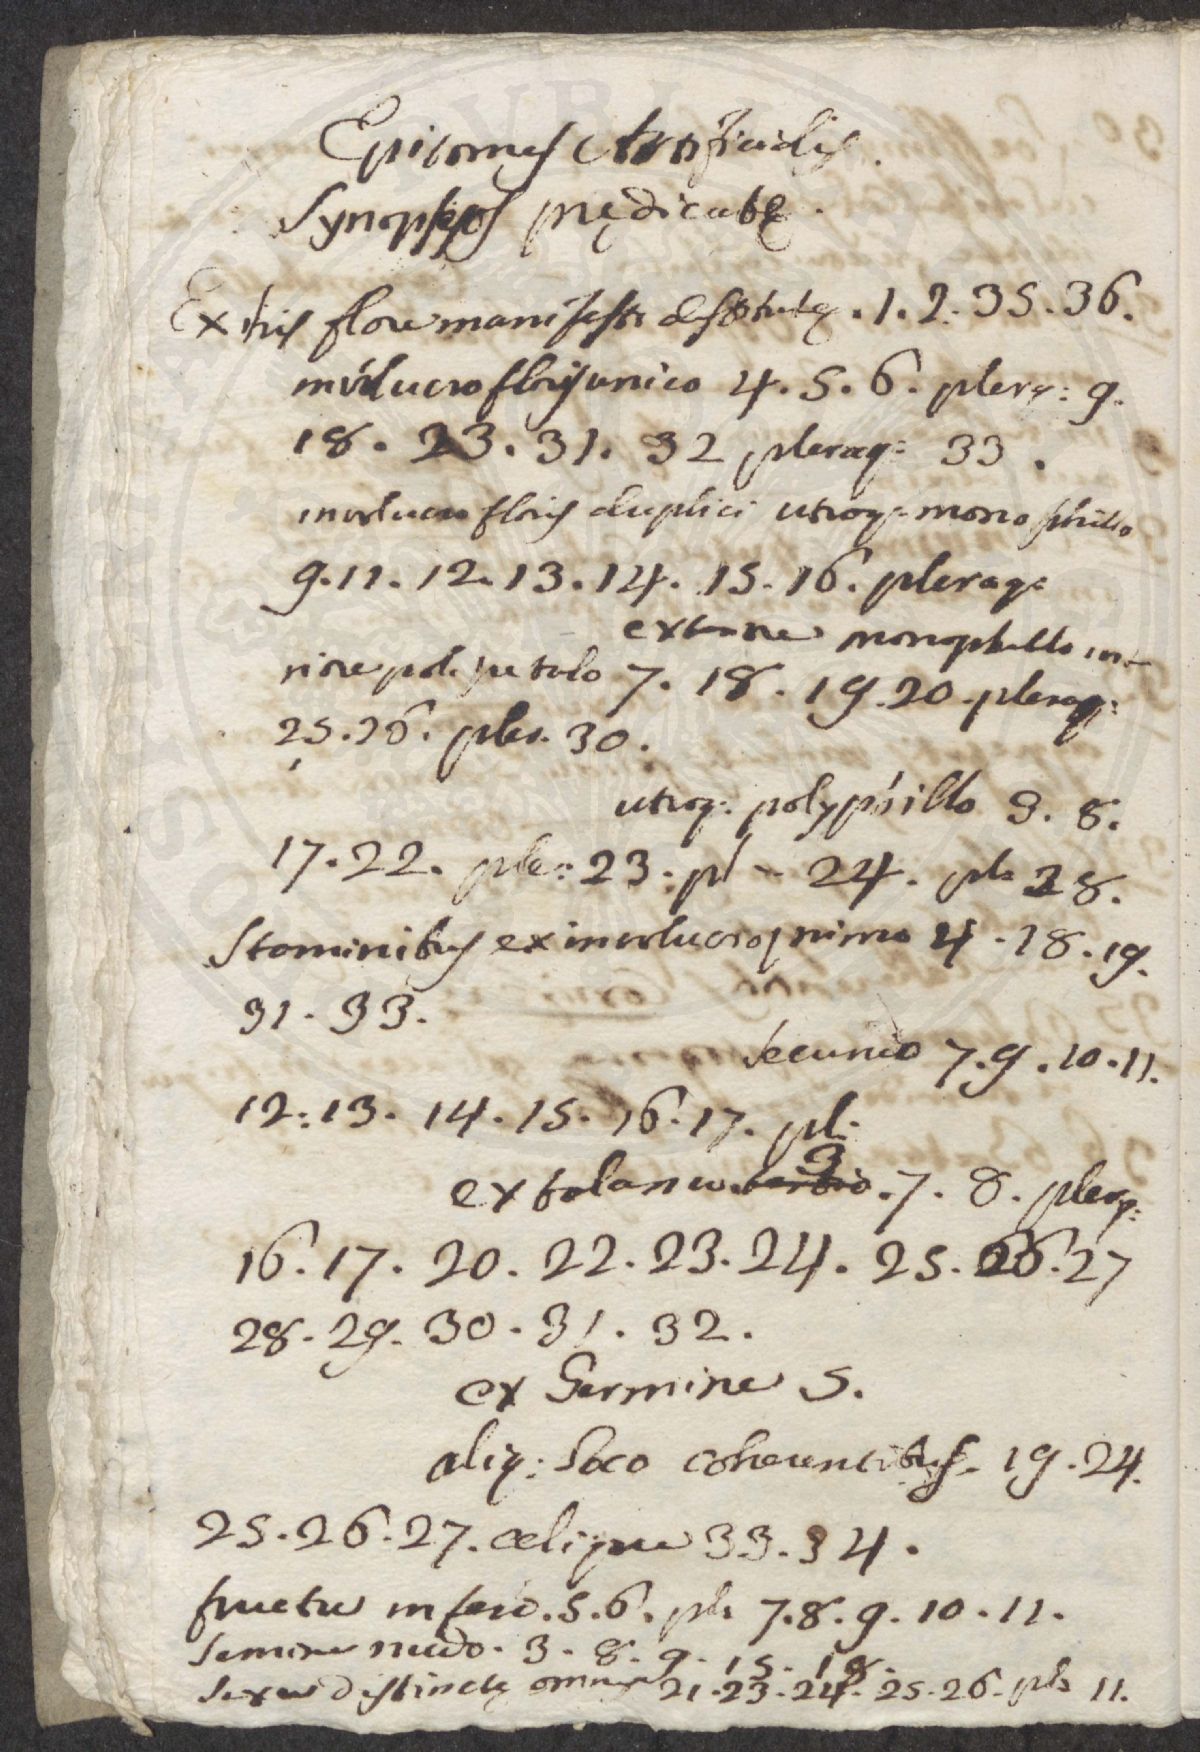 Epitomes Artificialis.
Synopseos prędicatę.
Ex his flore manifesto destitutę. 1. 2. 35. 36.
involucro floris unico 4. 5. 6. plerq: 9.
18. 23. 31. 32 pleraq: 33.
involucro floris duplici utroq: monophillo
9. 11. 12. 13. 14. 15. 16. pleraq:
exteriore monophillo inte
riore polipetalo 7. 18. 19. 20. pleraq:
25. 26. pler. 30.
utroq: polyphillo 3. 8.
17. 22. ple: 23: pl - 24. pls 28.
Staminibus ex involucro primo 4. 18. 19.
31. 33.
secundo 7. 9. 10. 11.
12: 13. 14. 15. 16. 17. pl:
ex 3. 7. 8. plerq:
16. 17. 20. 22. 23. 24. 25. 26. 27
28. 29. 30. 31. 32.
ex Germine 5.
aliq: Loco coherentibus. 19. 24.
25. 26. 27. 33. 34.
fructu infero. 5. 6. pls 7. 8. 9. 10. 11.
Semine nudo. 3. 8. 9. 15. 18.
Sexu distinctę omnes 21. 23. 24. 25. 26. pls 11.